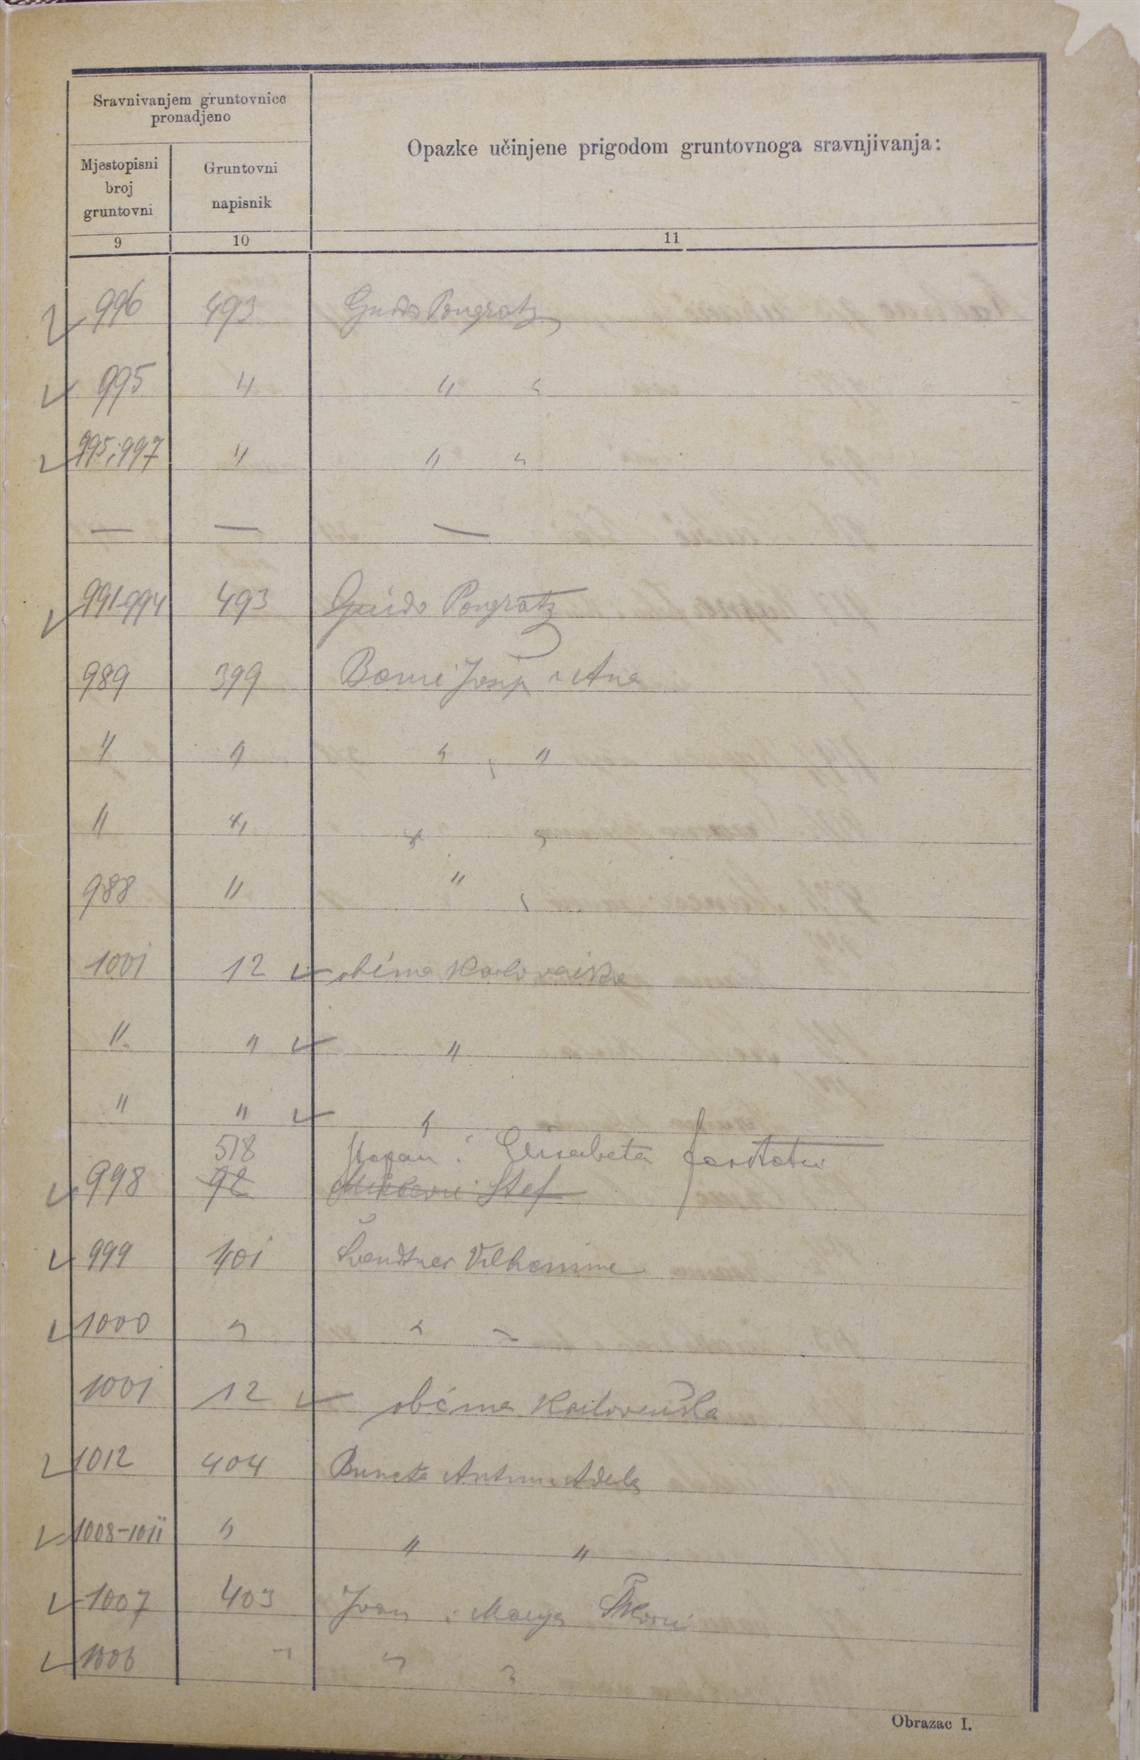 Sravnivanjem gruntovnice
pronadjeno
Opazke učinjene prigodom gruntovnoga sravnjivanja:
Mjestopisni
broj
gruntovni
Gruntovni
napisnik
9 10 11
996 493 Guido Pongratz
995 " " "
995 i 997 " " "
— — —
991-994 493 Guido Pongratz
989 399 Josip i Ana
" " " "
" " " "
988 " " "
1001 12 obćina Karlovačka
" " "
" " "
518 Stepan i Elisabeta
998 92 Stef
999 401 Vilhemine
1000 " " "
1001 12 obćina Karlovačka
1012 404 Buneta Antun i Adela
1008-1011 " " "
1007 403 Ivan i Marija
1006 " " "
Obrazac I.